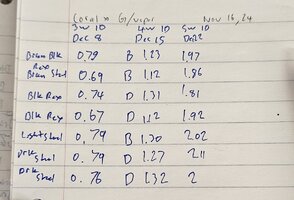 Coral x G/vipr Nov 16, 24
3w 10 4w 10 5w 10
Dec 8 Dec 15 Dec 22
Blk 0.79 B 1.23 1.97
Steel 0.69 B 1.12 1.86
Blk Rexo 0.74 D 1.31 1.81
Blk Rexo 0.67 D 1.12 1.92
Light steel 0.79 B 1.30 2.02
Drk Steel 0.79 D 1.27 2.11
Drk Steel 0.76 D 1.32 2